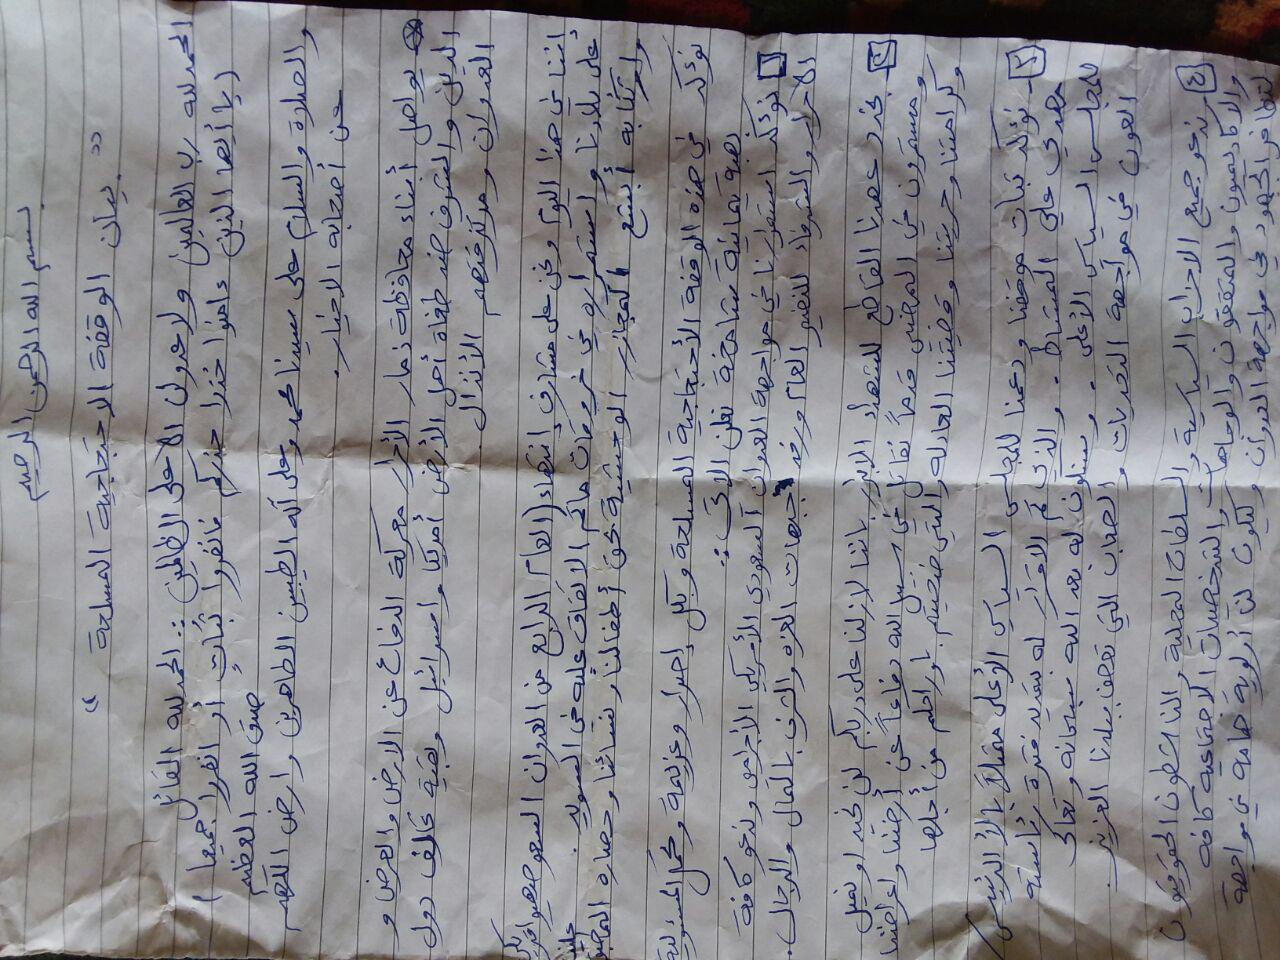 بسم الله الرحمن الرحيم
« بيان الوقفة الاحتجاجية المسلحة »
الحمد لله رب العالمين ولا عدوان الا على الظالمين :: الحمد لله القائل
( يا أيها الذين ءامنوا خذوا حذركم فانفروا ثباتٍ أو انفروا جميعا )
صدق الله العظيم
والصلاة والسلام على سيدنا محمد وعلى آله الطيبين الطاهرين وارض اللهم
عن أصحابه الاخيار.
يواصل أبناء محافظة ذمار الأحرار معركة الدفاع عن الارض والعرض و
الدين والشرف ضد طغاة أهل الأرض أمريكا واسرائيل وبقية تحالف دول
العدوان ومرتزقتهم الأنذال.
اننا في هذا اليوم ونحن على مشارف إنتهاء العام الرابع من العدوان السعو صهيو أمريكي
على بلادنا واستمراره في خروقات ماتم الاتفاق عليه في السويد.
وارتكابه أبشع المجازر الوحشية بحق أطفالنا ونسائنا وحصاره
نؤكد في هذه الوقفة الأحتجاجية المسلحة وبكل إصرار وعزيمة وتحمل المسئولية
صفة يمانية متلاحمة نعلن الآتي ::
١ نؤكد استمرارنا في مواجهة العدوان السعودي الأمريكي الأجرامي وندعو كافة
الأحرار والشرفاء للنفير العام ورفد جبهات العزه والشرف بالمال والرجال.
٢ نجدد عهدنا القاطع للشهداء الأبرار باننا لازلنا على دربكم لن نحيد او نميل
ومستمرون في المضي قدماً نقاتل في سبيل الله دفاعاً عن أرضنا واعراضنا
وكرامتنا وحريتنا وقضيتنا العادله والتي ضحيتم بارواحكم من أجلها
٣ نؤكد ثبات موقفنا ودعمنا للمجلس السياسي الأعلى ممثلاً بالأخ الرئيس /
مهدي علي المشاط. والذي تم الأقرار له بتمديد فتره ثانية
للمجلس السياسي الأعلى. وسنكون له بعد الله سبحانه وتعالى
العون في مواجهة التحديات والصعاب التي تعصف ببلادنا العزيز
٤ ندعو جميع الاحزاب السياسية والسلطات المحلية والناشطون الحقوقيون
والأكاديميون والمثقفون والوجاهات والشخصيات الاجتماعية كافه
لتظافر الجهود في مواجهة العدوان ولتكون لنا الرؤية هامة في مواجهة